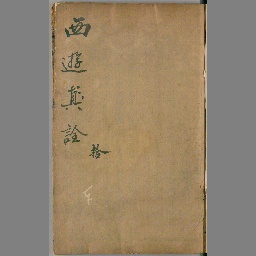 西遊真詮
拾